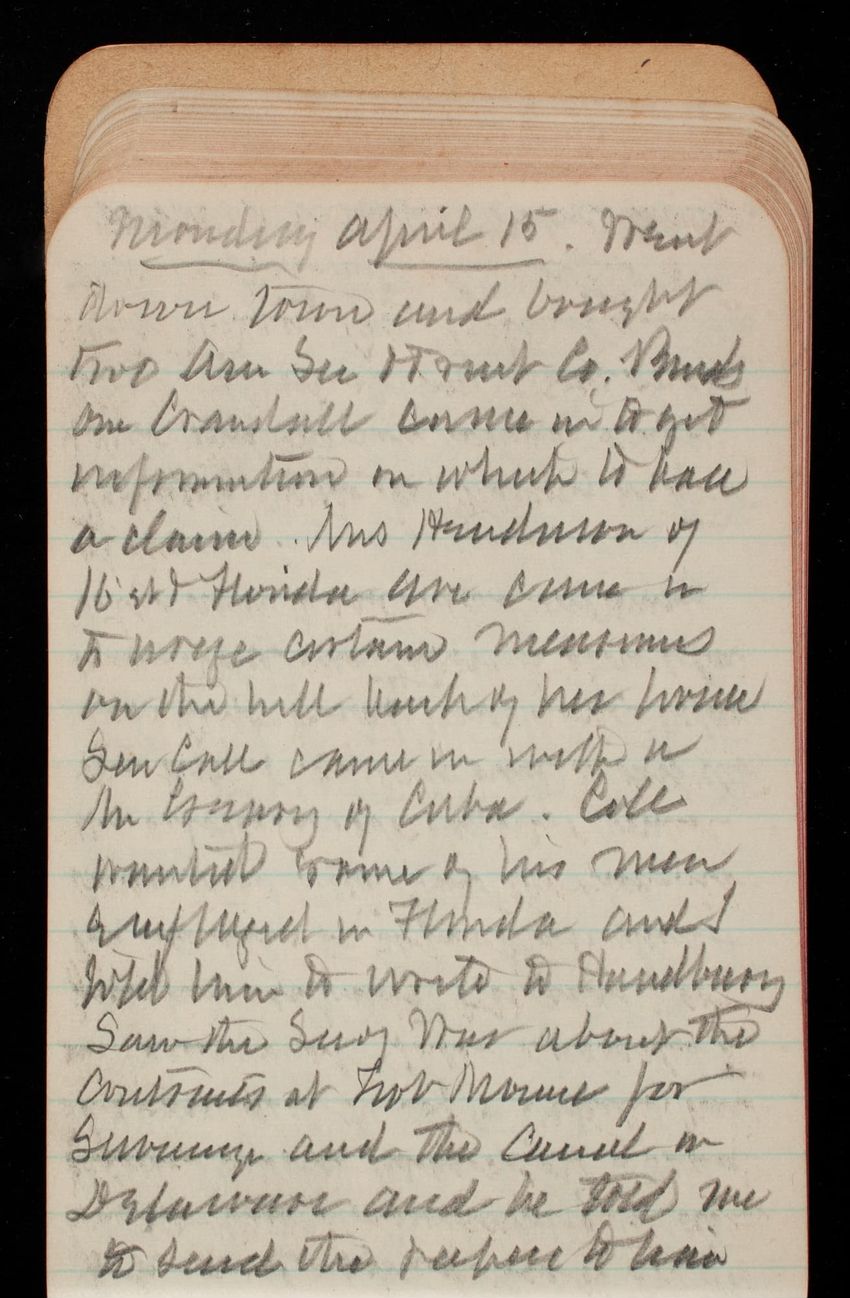 Monday April 15. Went
down town and bought
two Am Sec & Trust Co. Bonds
one Crandall came in to get
information on which to base
a claim. Mrs Henderson of
16 st & Florida Ave came in
to urge certain measures
on the hill back of her house
Sen Call came in with a
Mr of Cuba. Call
wanted some of his men
employed in Florida and I
told him to write to Handbury
Saw the Secy War about the
contracts at Fort Monroe for
Sewerage and the Canal in
Delaware and he told me
to send the papers to him